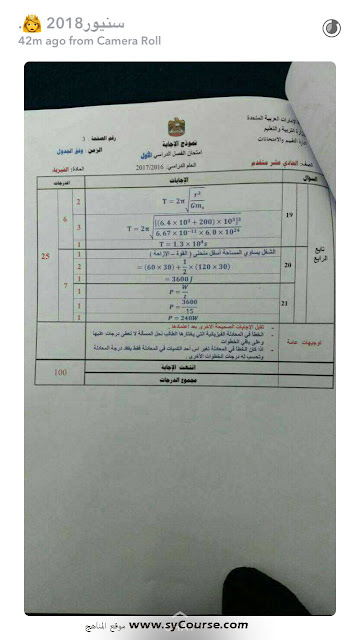 سنيور2018
42m ago from Camera Roll
الإمارات العربية المتحدة
وزارة التربية والتعليم
نموذج الإجابة
رقم الصفحة: 3
امتحان الفصل الدراسي الأول
الزمن: وفق الجدول
الصف: الحادي عشر متقدم
العام الدراسي: 2017/2016
المادة: الفيزياء
السؤال
الإجابات
الدرجات
تابع الرابع
25
19
6
T = 2π √(r³ / Gmₛ)
2
T = 2π √([(6.4 × 10³ + 200) × 10³]³ / 6.67 × 10⁻¹¹ × 6.0 × 10²⁴)
3
T = 1.3 × 10⁴s
1
20
7
الشغل يساوي المساحة أسفل منحنى ( القوة – الإزاحة )
1
= (60 × 30) + ½ × (120 × 30)
2
= 3600 J
1
21
P = W/t
1
P = 3600/15
1
P = 240W
1
توجيهات عامة
- تقبل الإجابات الصحيحة الأخرى بعد اعتمادها.
- الخطأ في المعادلة الفيزيائية التي يختارها الطالب لحل المسألة لا تعطى درجات عليها وعلى باقي الخطوات
- إذا كان الخطأ في المعادلة تغير أس أحد الكميات في المعادلة فقط يفقد درجة المعادلة وتحسب له درجات الخطوات الأخرى.
انتهت الإجابة
مجموع الدرجات
100
موقع المناهج www.syCourse.com